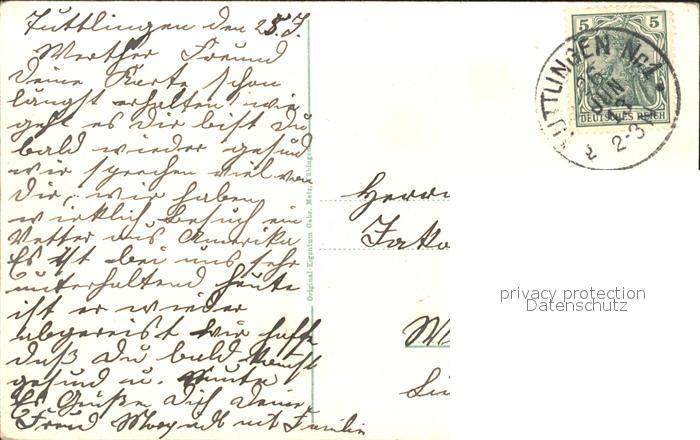 Tuttlingen den 25. J.
Werther Freund
deine Karte schon
längst erhalten, wie
geht es dir bist du
bald wieder gesund
wir sprechen viel von
dir, wir haben
wirklich Besuch ein
Vetter aus Amerika
Es ist bei uns sehr
unterhaltend heute
ist er wieder
abgereist wir hoffe
daß du bald kannst
gesund u. munter
Es Grüße dich deine
Freund mit Familie
Original-Eigentum Gebr. Metz, Tübingen
5 5
DEUTSCHES REICH
TUTTLINGEN No 1
JUN
13
2-3
Herrn
privacy protection
Datenschutz